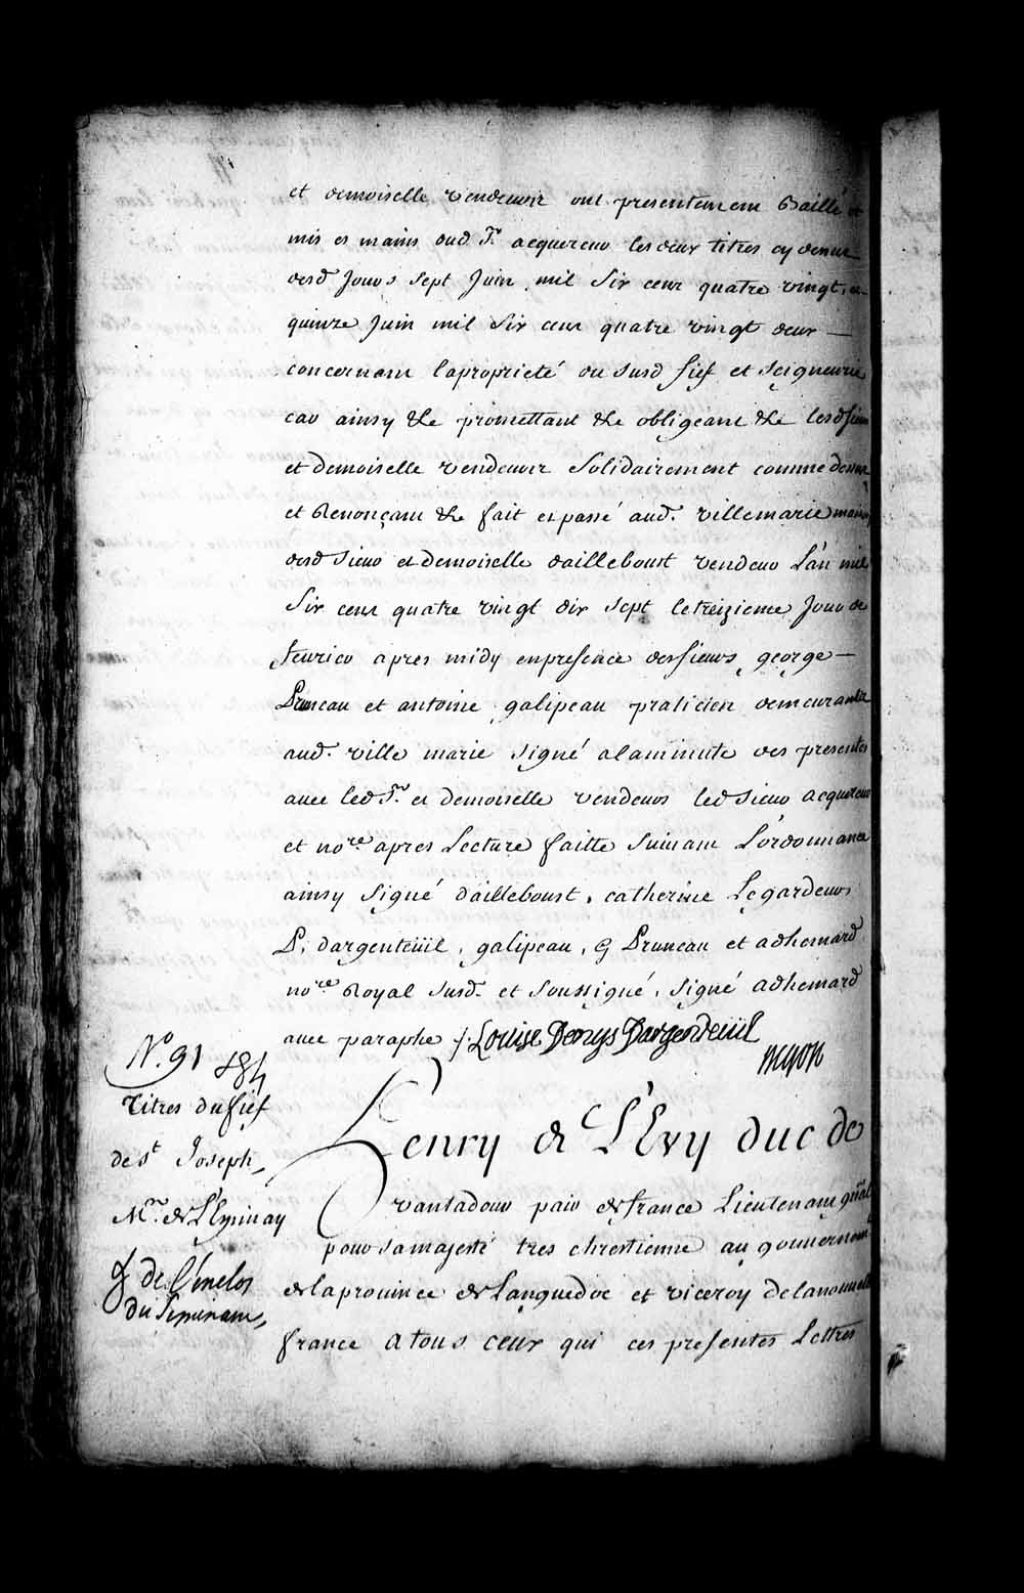 et demoiselle vendeurs ont presentement Baillé et
mis es mains dud Sr. acquereur les deux titres cy dessus
desd Jours sept Juin mil Six cens quatre vingt, et
quinze Juin mil Six cens quatre vingt deux —
concernant laproprieté du susd fief et Seigneurie
car ainsy &c promettant &c obligeant &c lesd sieur
et demoiselle vendeurs Solidairement comme dessus
et Renonçant &c fait et passé aud. villemarie maison
desd Sieur et demoiselle dailleboust vendeur L'an mil
Six cens quatre vingt dix sept le treizieme Jour de
feurier apres midy en presence des sieurs george —
Pruneau et antoine galipeau praticien demeurants
aud. ville marie signé a la minute des presentes
auec led Sr. et demoiselle vendeurs led Sieur acquereur
et nore apres Lecture faitte Suiuant L'ordonnance
ainsy Signé dailleboust, catherine Legardeur
P. dargenteüil, galipeau, G Pruneau et adhemard
nore Royal susd. et soussigné, signé adhemard
auec paraphe /. Louise Denys Dargenteüil
No. 91 184
Titres du fief
de st Joseph,
Mr. de L'Epinay
& de
du Seminaire,
Henry de L'Evy duc de
vantadour pair de france Lieutenant gñal
pour sa majesté tres chrestienne au gouuernement
de la prouince de Languedoc et viceroy de la nouuelle
france a tous ceux qui ces presentes Lettres